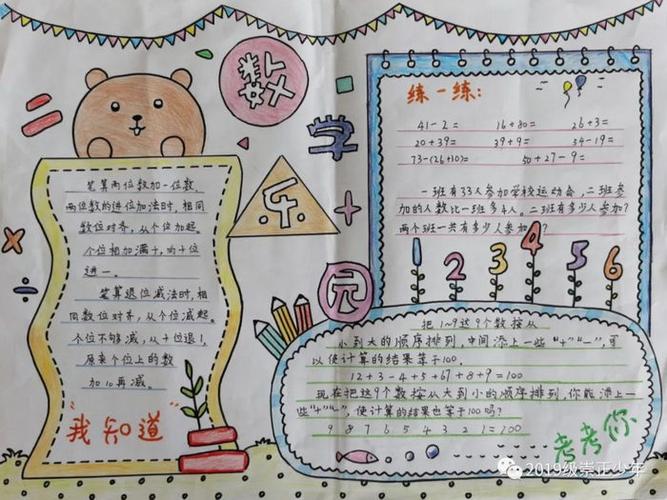 数
学
乐
园
笔算两位数加一位数,
两位数的进位加法时,相同
数位对齐,从个位加起。
个位相加满十,向十位
进一。
笔算退位减法时,相
同数位对齐,从个位减起。
个位不够减,从十位退1,
原来个位上的数
加10再减。
"我知道"
练一练:
41-2= 16+80= 26+3=
20+39= 39+9= 34-19=
73-(26+10)= 50+27-9=
一班有33人参加学校运动会,二班参
加的人数比一班多4人。二班有多少人参加?
两个班一共有多少人参加?
1 2 3 4 5 6
把1~9这9个数按从
小到大的顺序排列,中间添上一些"+""-",可
以使计算的结果等于100,
12+3-4+5+67+8+9=100
现在把这9个数按从大到小的顺序排列,你能添上一
些"+""-",使计算的结果也等于100吗?
9 8 7 6 5 4 3 2 1=100
考考你
2019级崇正少年